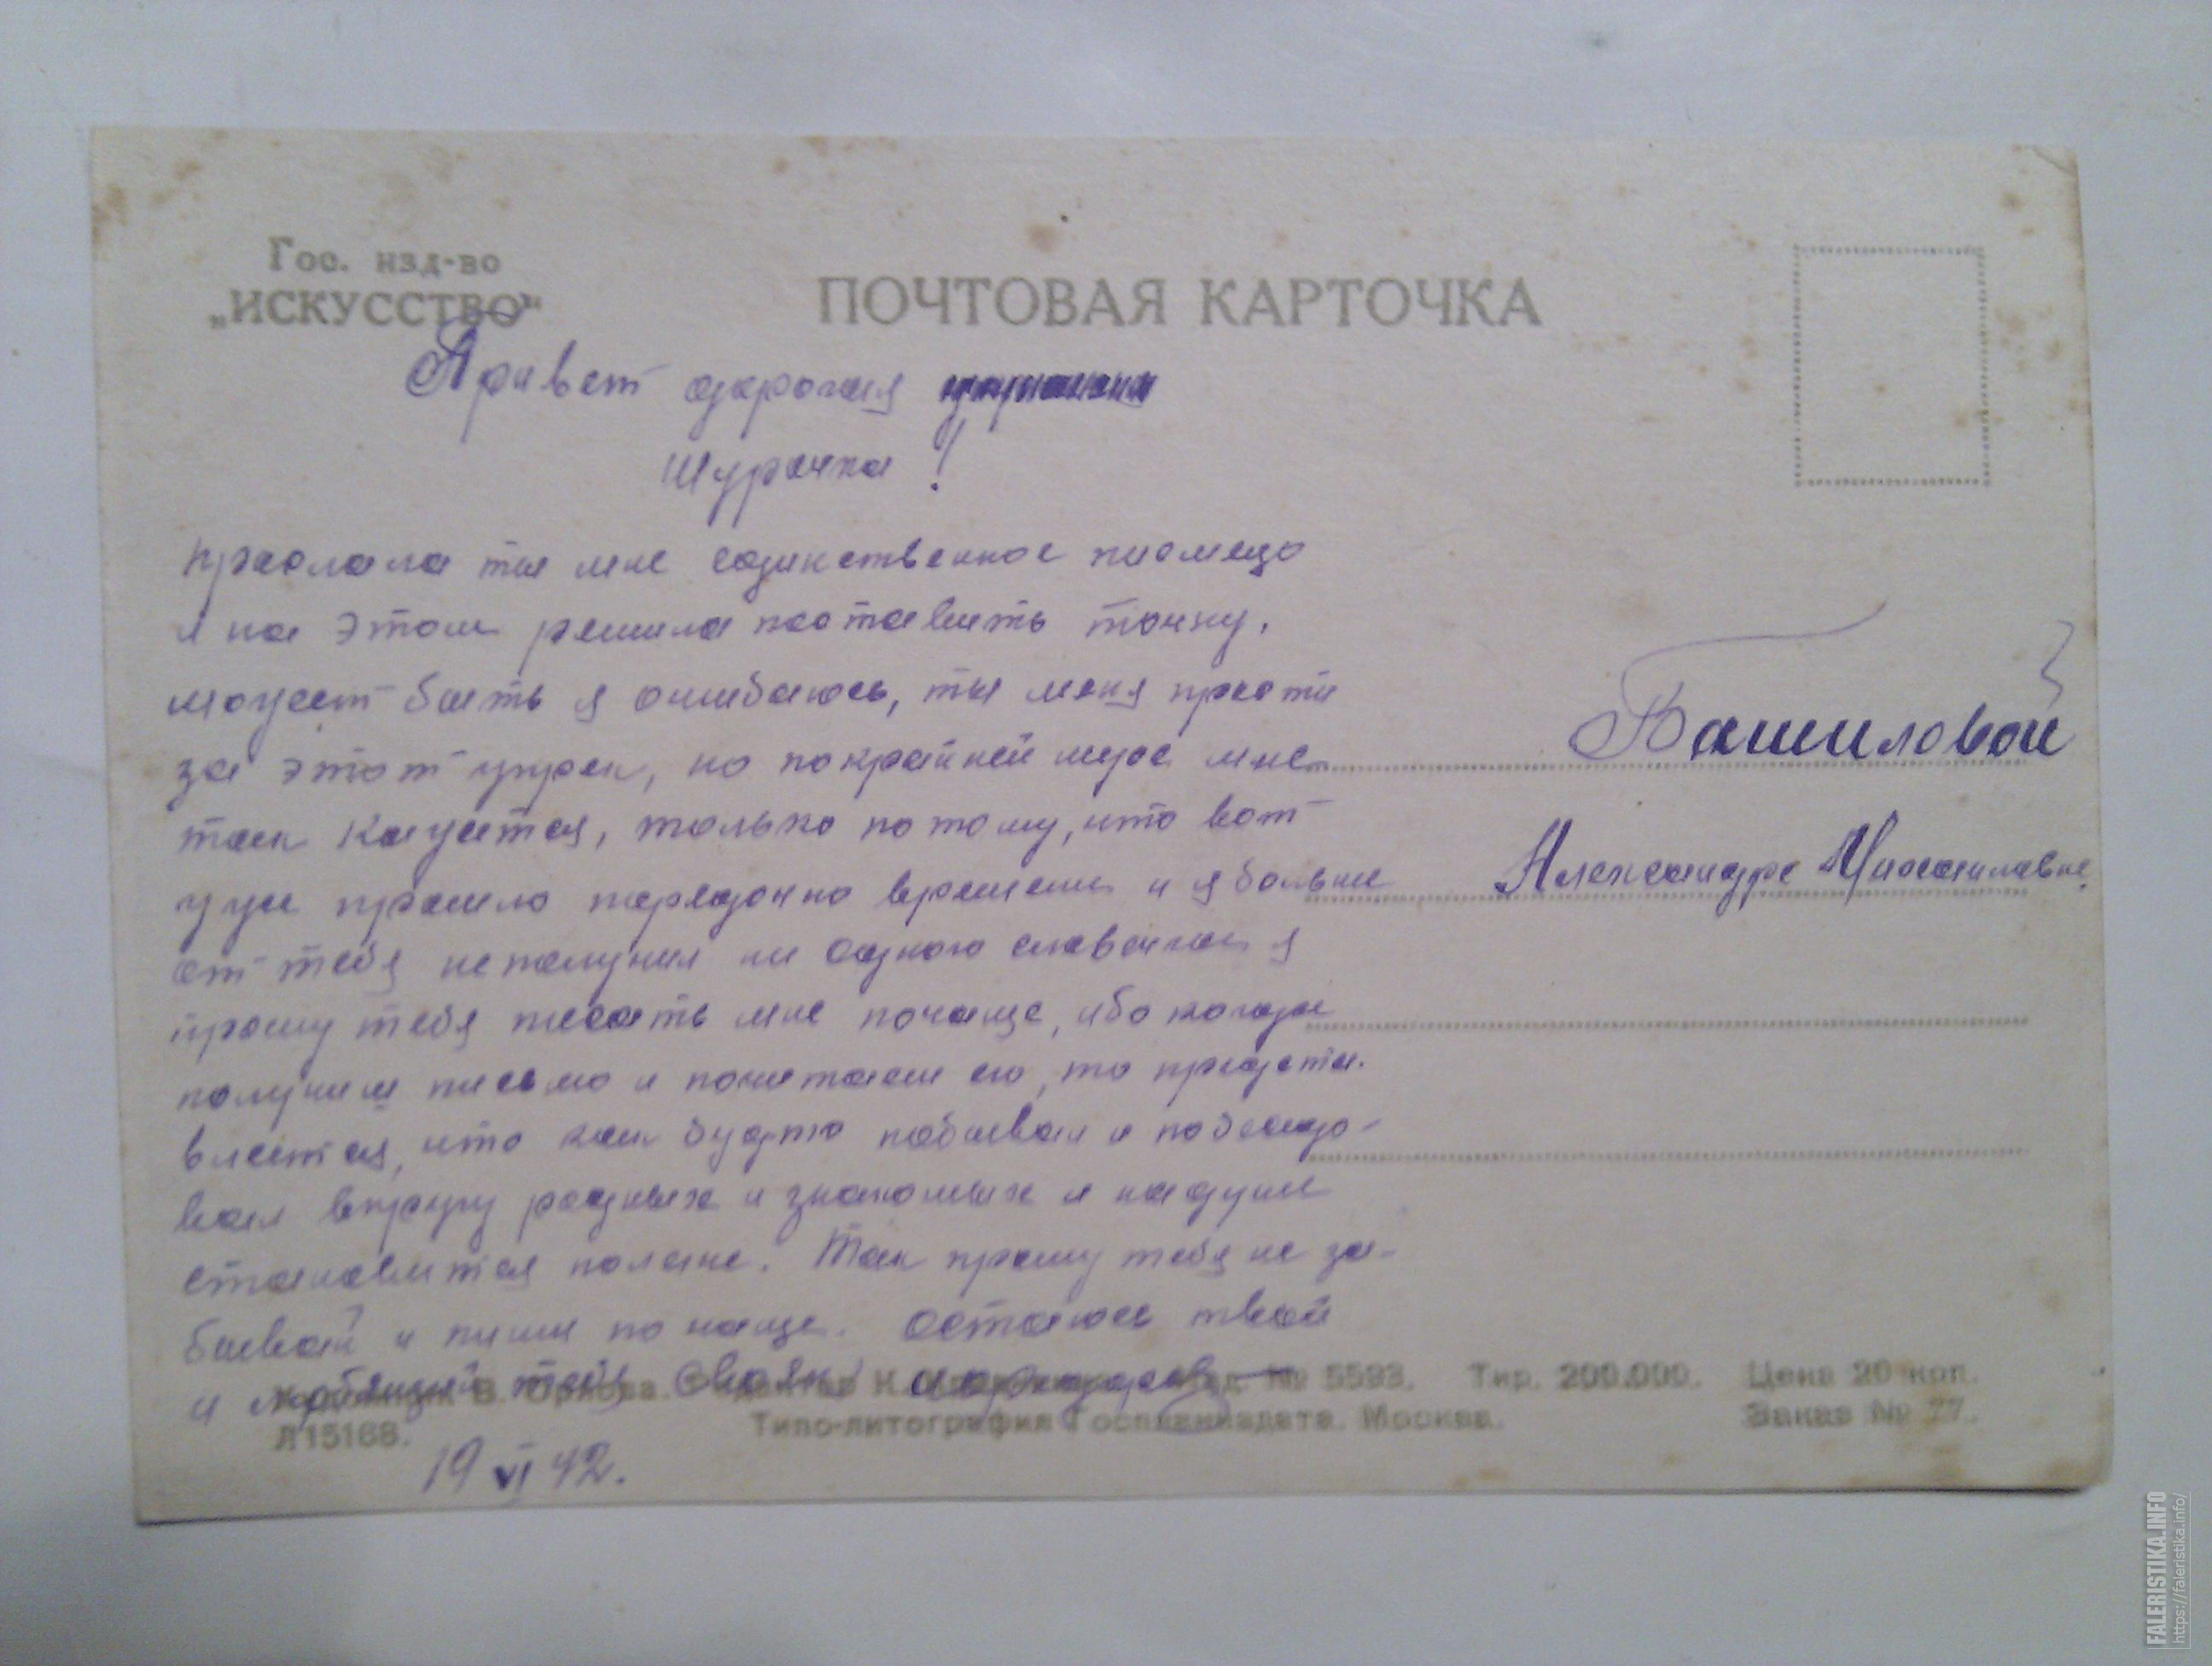 Гос. изд-во
„ИСКУССТВО“
ПОЧТОВАЯ КАРТОЧКА
Привет дорогая
Шурочка!
прислала ты мне единственное писмецо
и на этом решила поставить точку.
может быть я ошибаюсь, ты меня прости
за этот упрек, но покрайней мере мне
так кажется, только потому, что вот
уже прошло порядочно времени и я больше
от тебя неполучил ни одного словечка я
прошу тебя писать мне почаще, ибо когда
получиш письмо и почитаеш его, то предста-
вляется, что как будто побывал и побеседо-
вал вкругу родных и знакомых и надуше
становится полегче. Так прошу тебя не за-
бывай и пиши по чаще. Остаюсь твой
и любящий тебя свояк
19 VI 42.
Башиловой
Александре Михаиловне
№ 5593. Тир. 200.000. Цена 20 коп.
Л15168. Типо-литография Госпланиздата. Москва. Заказ № 77.
FALERISTIKA.INFO
https://faleristika.info/